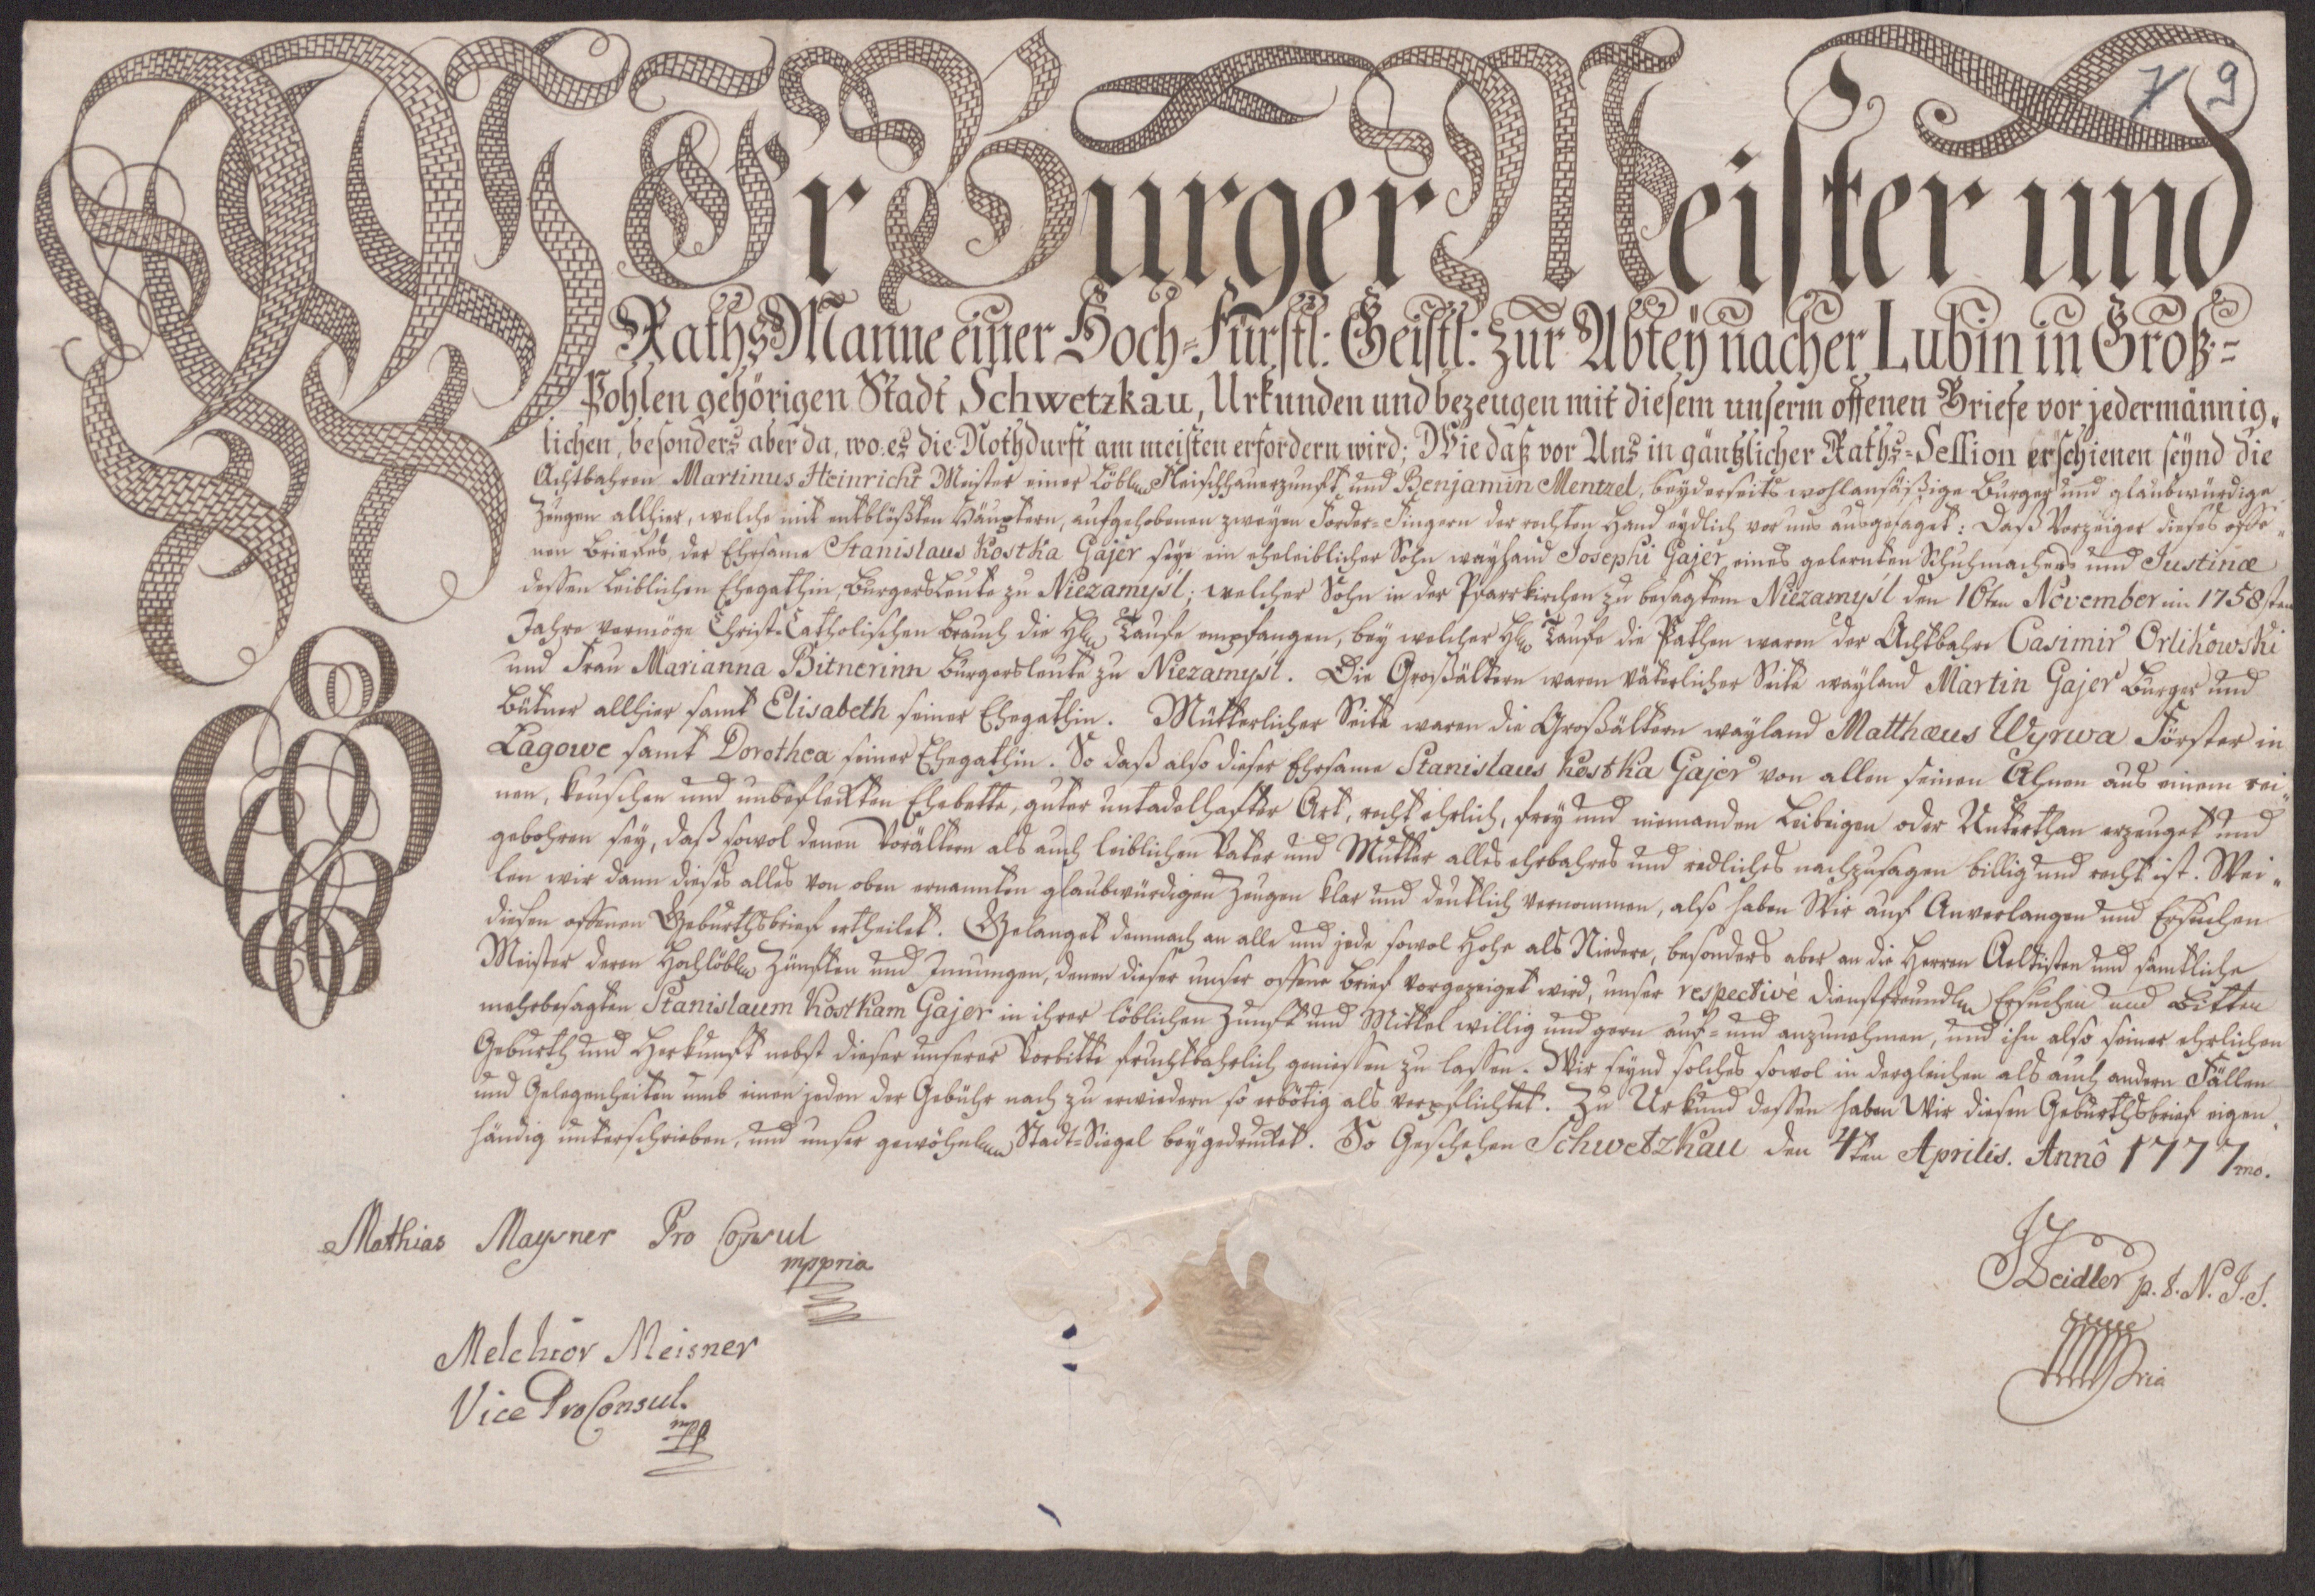 7 9
WIr BurgerMeister und
RathsManne einer Hoch=Fürstl: Geistl: zur Abteÿ nacher Lubin in Groß=
Pohlen gehörigen Stadt Schwetzkau, Urkunden und bezeugen mit diesem unserm offenen Briefe vor jedermännig„
lichen, besonders aber da, wo es die Nothdurft am meisten erfordern wird; Wie daß vor Uns in gäntzlicher Raths=Session erschienen seÿnd die
Achtbahren Martinus Heinricht Meister einer Löbln Fleischhauerzunft, und Benjamin Mentzel, beÿderseits wohlansäßige Bürger und glaubwürdige
Zeugen allhier, welche mit entblößten Häuptern, aufgehobenen zweÿen Forder=Fingern der rechten Hand eÿdlich vor uns ausgesaget: Daß Vorzeiger dieses offe„
nen Briefes, der Ehrsame Stanislaus Kostka Gajer seÿe ein eheleiblicher Sohn waÿland Josephi Gajer, eines gelernten Schuhmachers und Justinæ
dessen leiblichen Ehegathin, Bürgersleute zu Niezamyśl; welcher Sohn in der Pfarrkirchen zu besagtem Niezamyśl den 16ten November im 1758sten
Jahre vermöge Christ=Catholischen Brauch die Hln Taufe empfangen, beÿ welcher Hln Taufe die Pathen waren der Achtbahre Casimir Orlikowski
und Frau Marianna Bitnerinn Bürgersleute zu Niezamyśl. Die Großältern waren väterlicher Seite waÿland Martin Gajer Bürger und
Bütner allhier samt Elisabeth seiner Ehegathin. Mütterlicher Seite waren die Großältern waÿland Matthæus Wyrwa Förster in
Lagowe samt Dorothea seiner Ehegathin. So daß also dieser Ehrsame Stanislaus Kostka Gajer von allen seinen Ahnen aus einem rei„
nen, keuschen und unbefleckten Ehebette, guter untadelhafter Art, recht ehrlich, freÿ und niemanden Leibeigen oder Unterthan erzeuget und
gebohren seÿ, daß sowol denen Vorältern als auch leiblichen Vater und Mutter alles ehrbahres und redliches nachzusagen billig und recht ist. Wei„
len wir dann dieses alles von oben ernannten glaubwürdigen Zeugen klar und deutlich vernommen, also haben Wir auf Anverlangen und Ersuchen
diesen offenen Geburthsbrief ertheilet. Gelanget demnach an alle und jede sowol Hohe als Niedere, besonders aber an die Herren Aeltisten und sämtliche
Meister deren Hochlöbln Zünften und Innungen, denen dieser unser offene Brief vorgezeiget wird, unser respectivè dienstfreundln Ersuchen und Bitten
mehrbesagten Stanislaum Kostkam Gajer in ihrer löblichen Zunft und Mittel willig und gern auf= und anzunehmen, und ihn also seiner ehrlichen
Geburth und Herkunft nebst dieser unserer Vorbitte fruchtbahrlich geniessen zu lassen. Wir seÿnd solches sowol in dergleichen als auch andern Fällen
und Gelegenheiten umb einen jeden der Gebühr nach zu erwiedern so erbötig als verpflichtet. Zu Urkund dessen haben Wir diesen Geburthsbrief eigen„
händig unterschrieben, und unser gewöhnln Stadt=Siegel beÿgedrucket. So Geschehen Schwetzkau den 4ten Aprilis. Annô 1777mo.
Mathias Maysner Pro Consul
mppria
Melchior Meisner
Vice ProConsul.
mpp
JZeidler p. t. N. J. S.
mppria